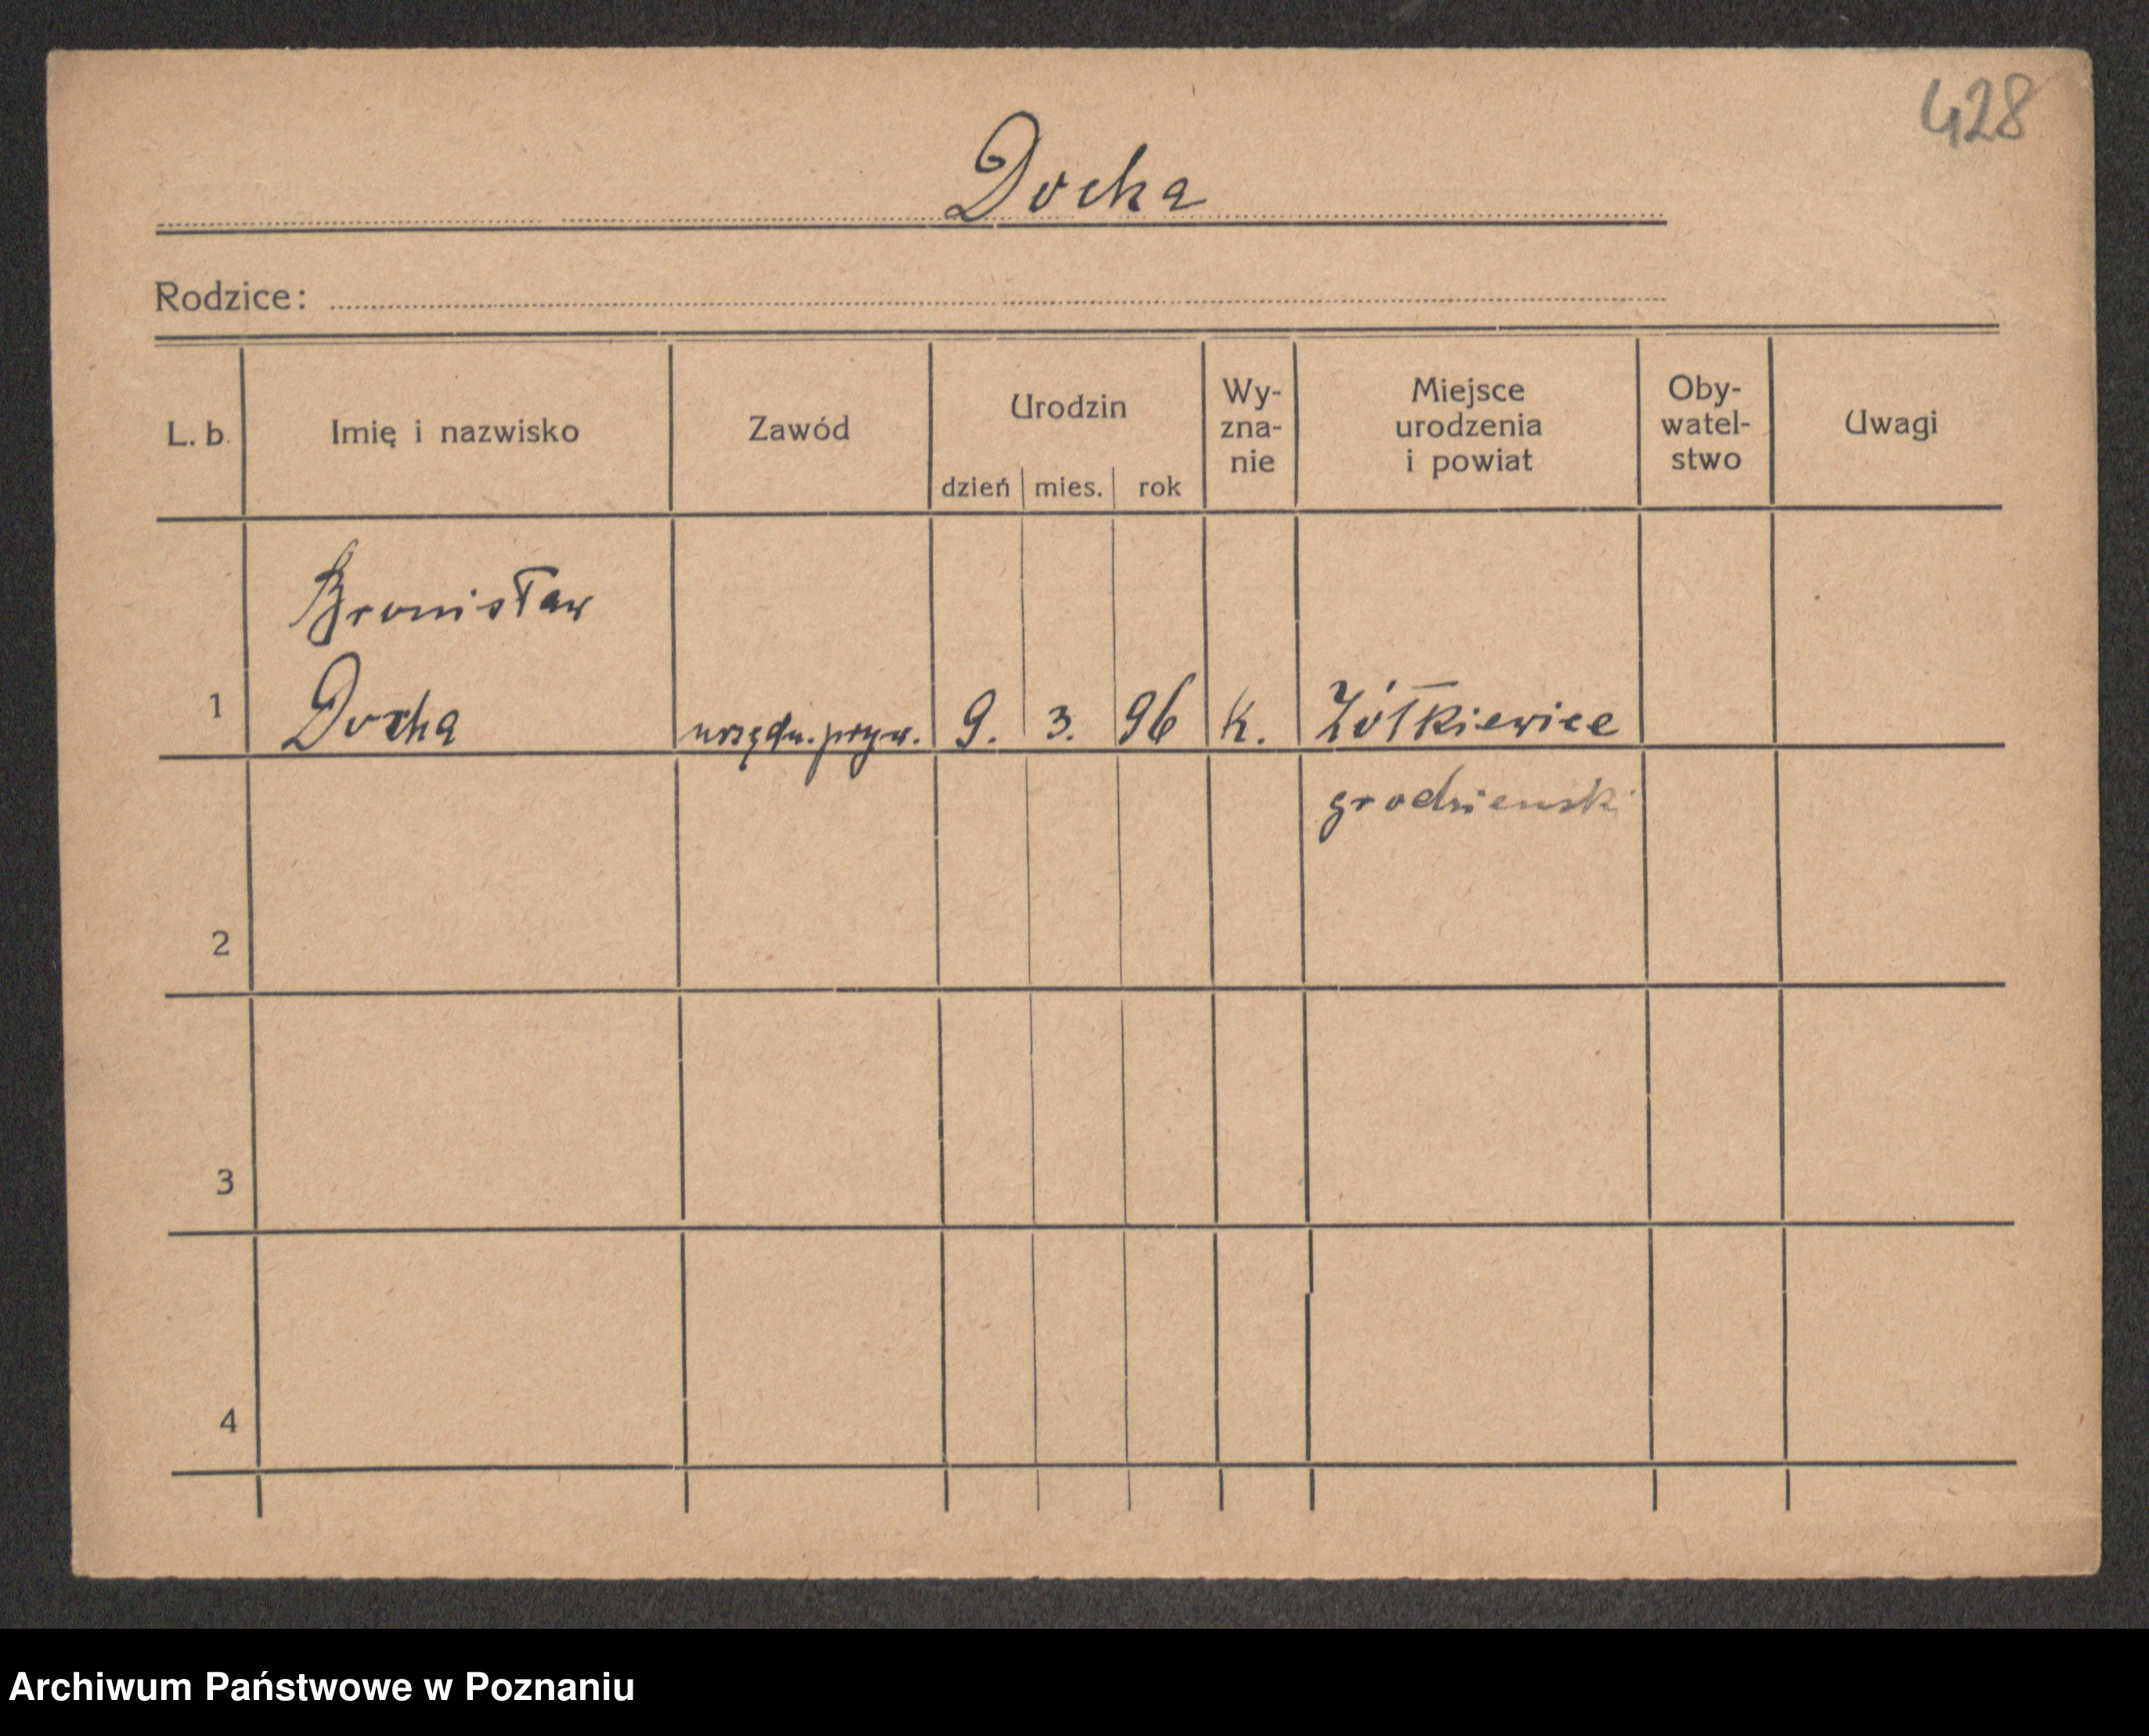 428
Docha
Rodzice:
L. b. Imię i nazwisko Zawód Urodzin dzień mies. rok Wy-zna-nie Miejsce urodzenia i powiat Oby-watel-stwo Uwagi
Bronisław
1 Docha urzędn. pryw. 9. 3. 96 K. Żółkiewice
grodzieński
2
3
4
Archiwum Państwowe w Poznaniu